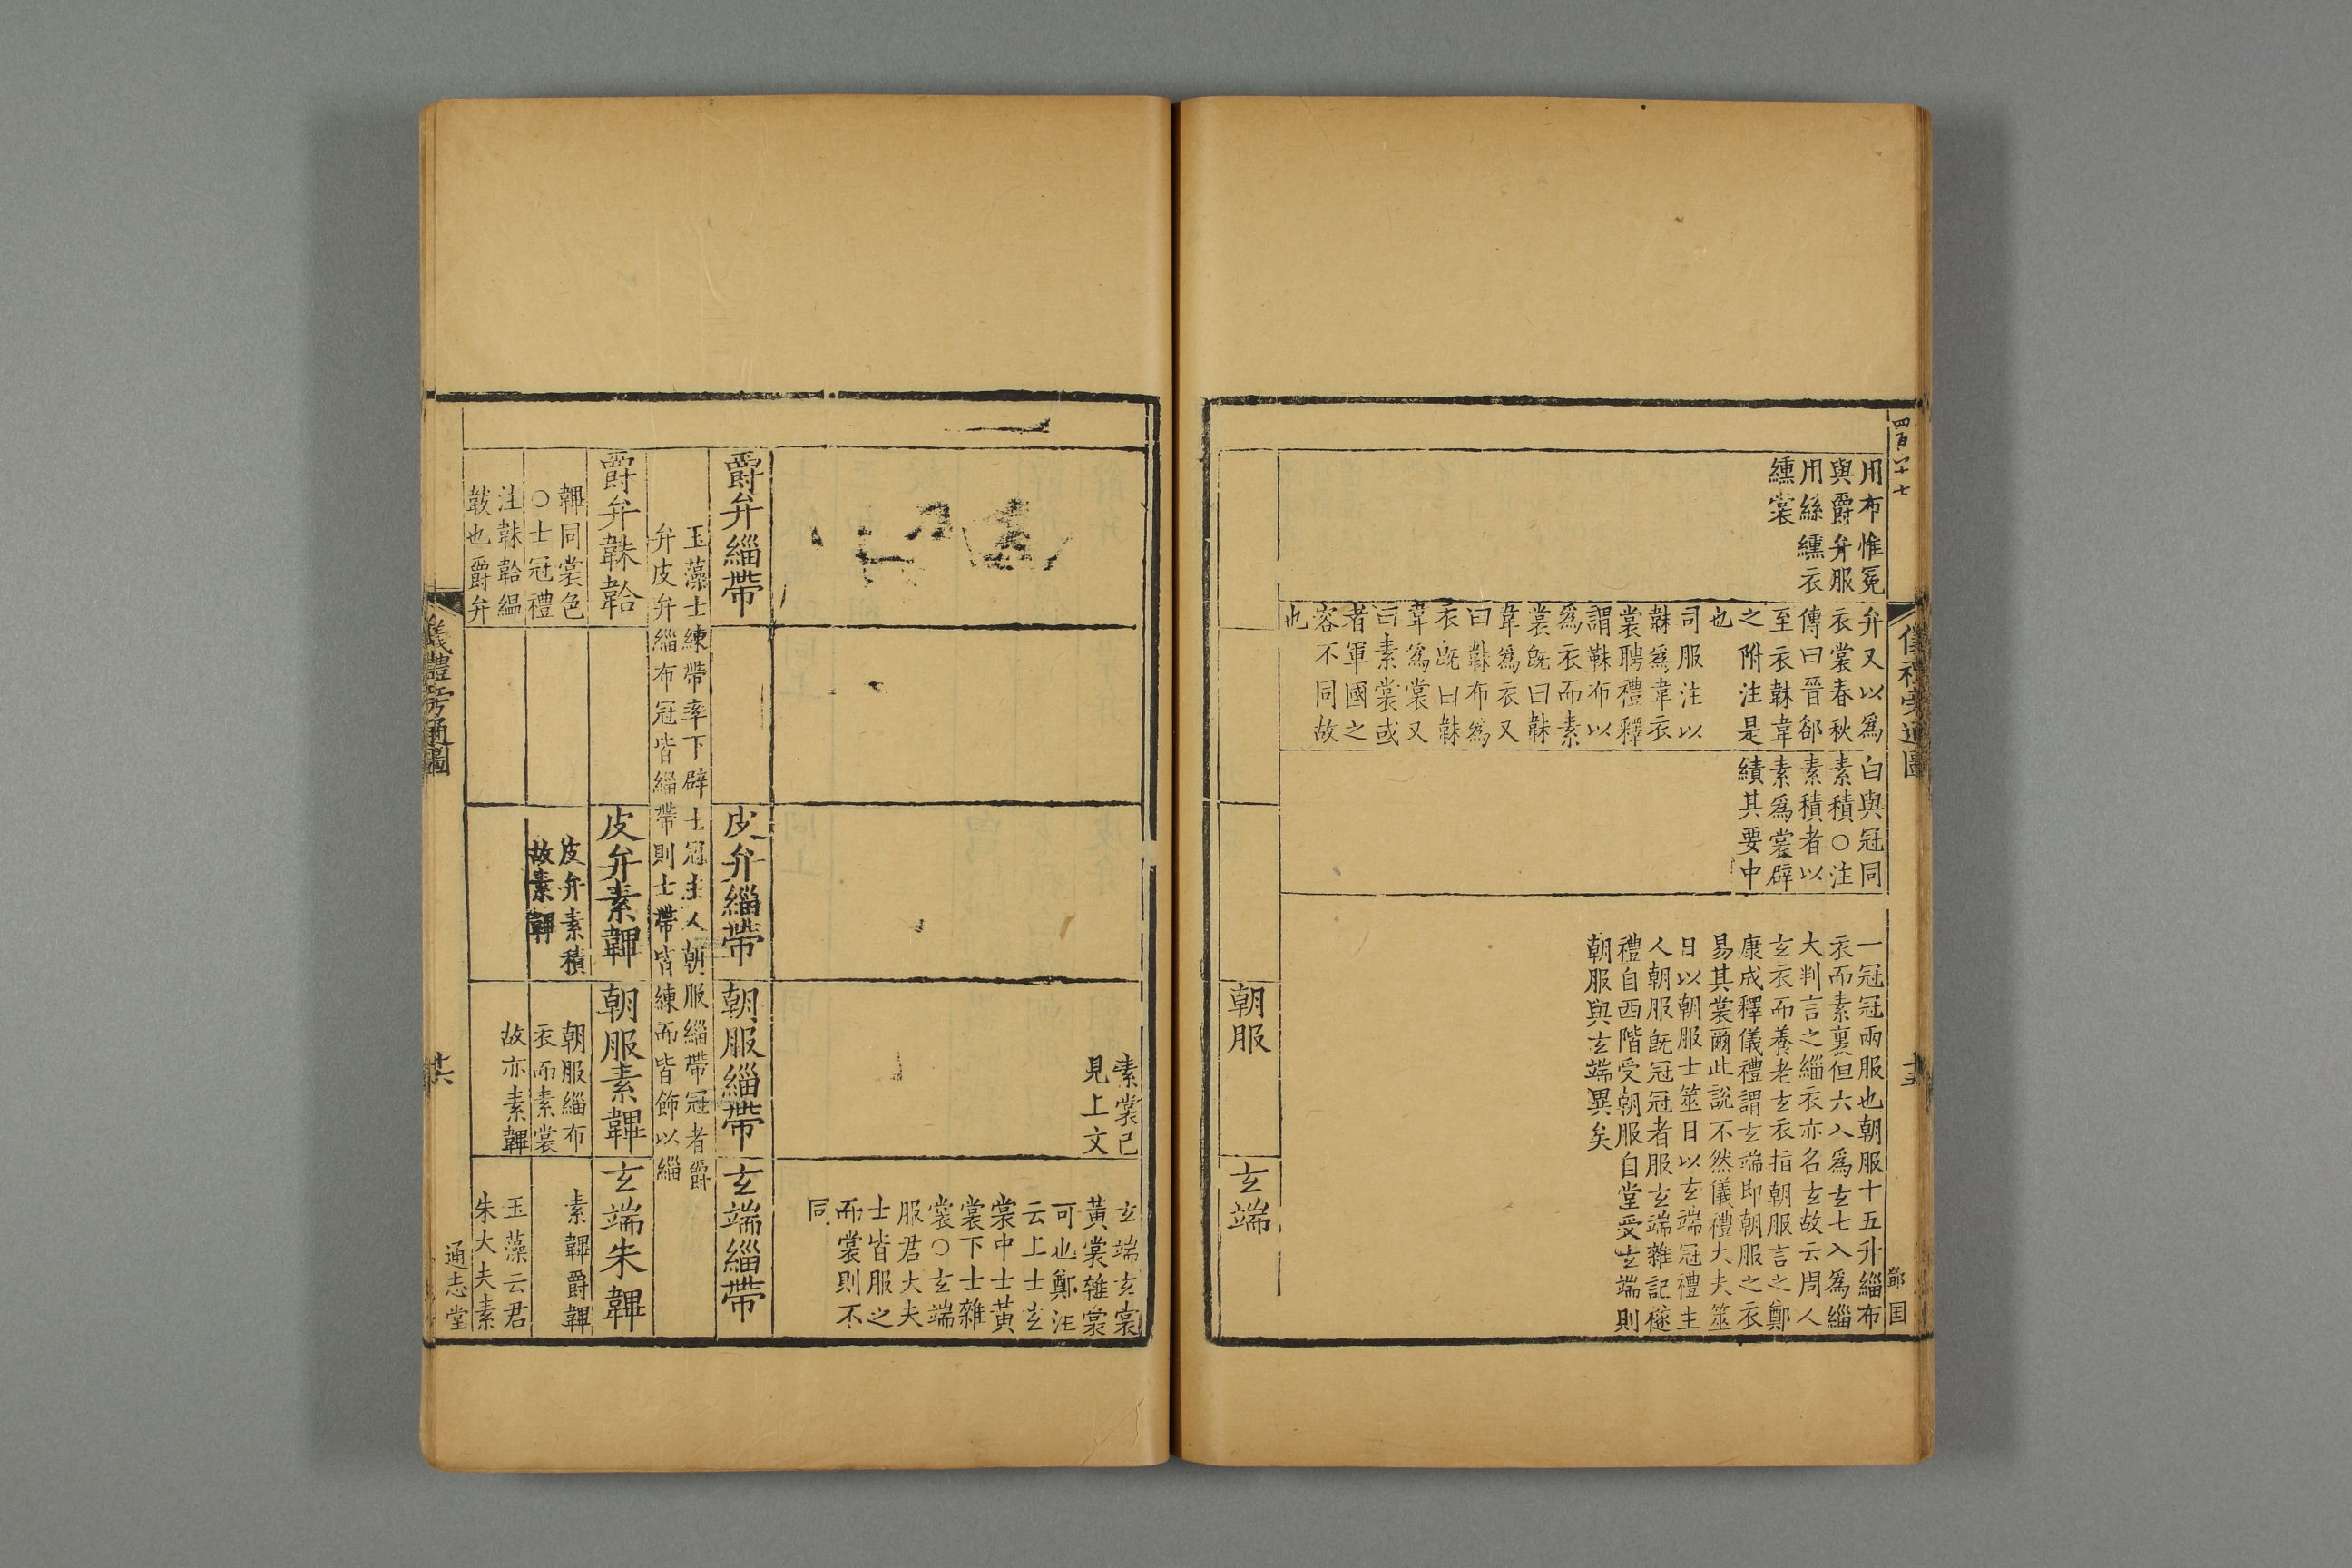 用布惟冕
與爵弁服
用絲纁衣
纁裳
弁又以爲
衣裳春秋
傳曰晉郤
至衣韎韋
之跗注是
也
司服注以
韎爲韋衣
裳聘禮釋
謂韎布以
爲衣而素
裳旣曰韎
韋爲衣又
曰韎布爲
衣旣曰韎
韋爲裳又
曰素裳或
者軍國之
容不同故
也
白與冠同
素積○注
素積者以
素爲裳辟
績其要中
一冠冠兩服也朝服十五升緇布
衣而素裏但六入爲玄七入爲緇
大判言之緇衣亦名玄故云周人
玄衣而養老玄衣指朝服言之鄭
康成釋儀禮謂玄端即朝服之衣
易其裳爾此說不然儀禮大夫筮
日以朝服士筮日以玄端冠禮主
人朝服旣冠冠者服玄端雜記襚
禮自西階受朝服自堂受玄端則
朝服與玄端異矣
朝服
玄端
素裳已
見上文
玄端玄裳
黃裳雜裳
可也鄭注
云上士玄
裳中士黃
裳下士雜
裳○玄端
服君大夫
士皆服之
而裳則不
同
爵弁緇帶
皮弁緇帶
朝服緇帶
玄端緇帶
玉藻士練帶率下辟士冠主人朝服緇帶冠者爵
弁皮弁緇布冠皆緇帶則士帶皆練而皆飾以緇
爵弁韎韐
皮弁素韠
朝服素韠
玄端朱韠
韠同裳色
○士冠禮
注韎韐緼
韍也爵弁
皮弁素積
故素韠
朝服緇布
衣而素裳
故亦素韠
素韠爵韠
玉藻云君
朱大夫素
儀禮旁通圖
通志堂